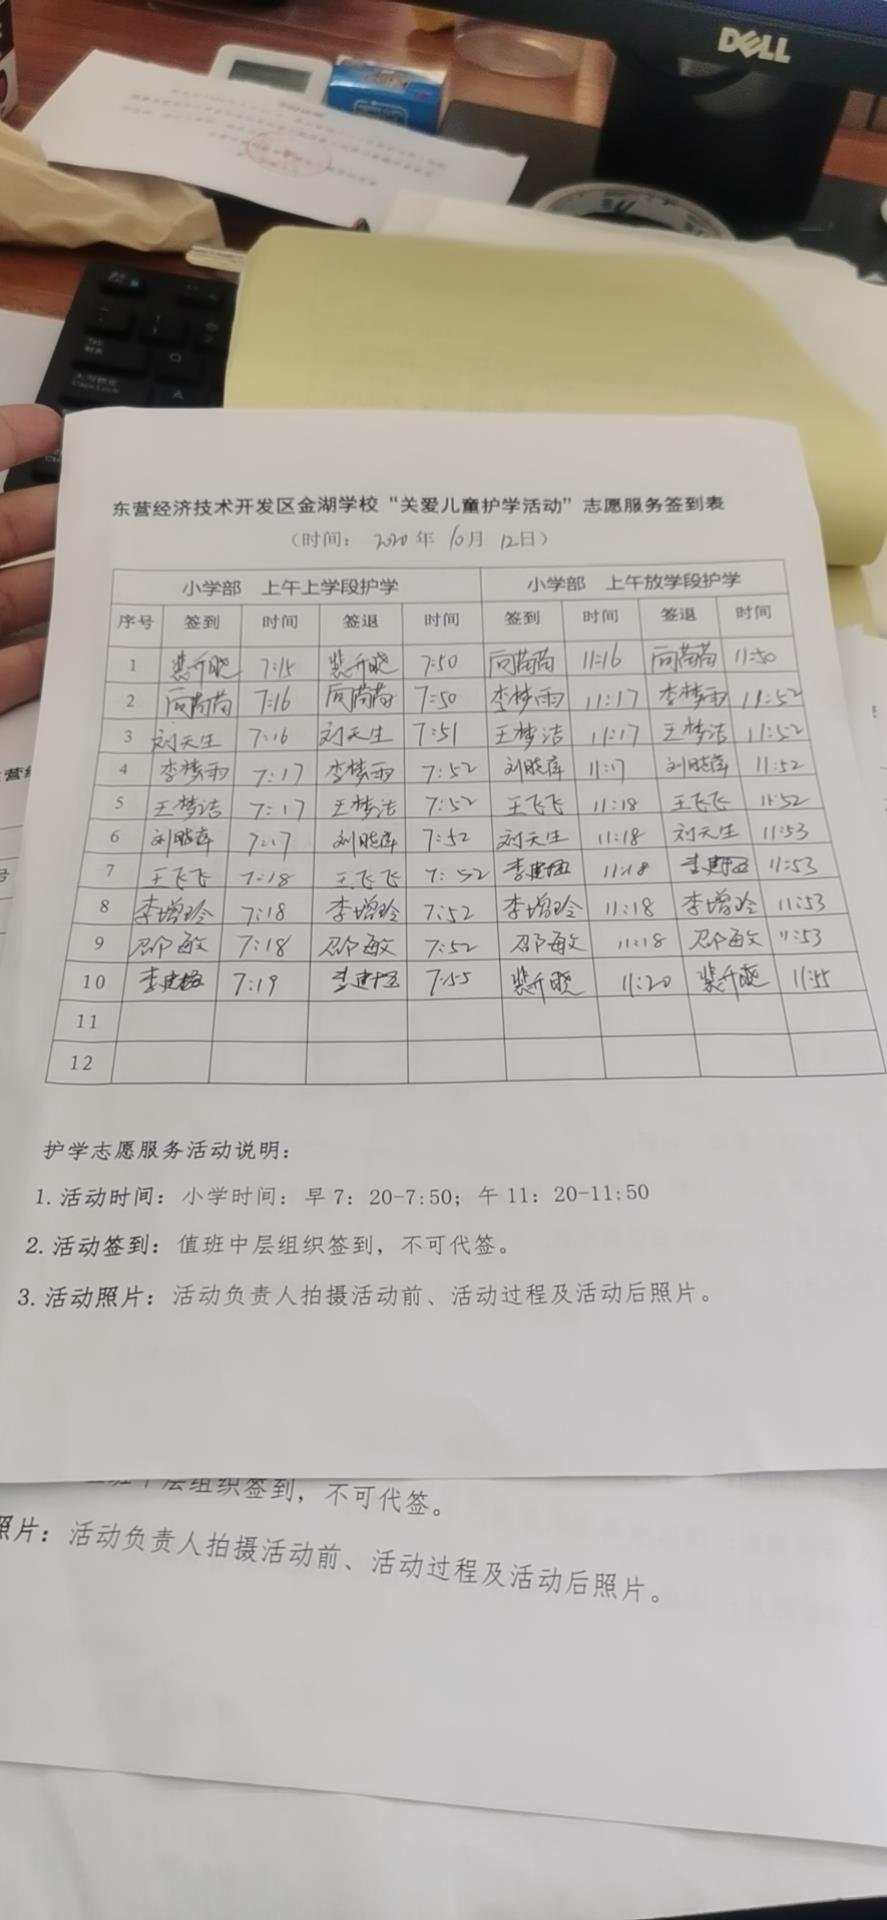 DELL
东营经济技术开发区金湖学校“关爱儿童护学活动”志愿服务签到表
（时间： 2020 年 10月 12日）
小学部 上午上学段护学 小学部 上午放学段护学
序号 签到 时间 签退 时间 签到 时间 签退 时间
1 7:15 7:50 向苘苘 11:16 向苘苘 11:50
2 向苘苘 7:16 向苘苘 7:50 李梦雨 11:17 李梦雨 11:52
3 刘天生 7:16 刘天生 7:51 王梦洁 11:17 王梦洁 11:52
4 李梦雨 7:17 李梦雨 7:52 刘晓庠 11:17 刘晓庠 11:52
5 王梦洁 7:17 王梦洁 7:52 王飞飞 11:18 王飞飞 11:52
6 刘晓庠 7:17 刘晓庠 7:52 刘天生 11:18 刘天生 11:53
7 王飞飞 7:18 王飞飞 7:52 11:18 11:53
8 李增玲 7:18 李增玲 7:52 李增玲 11:18 李增玲 11:53
9 邵敏 7:18 邵敏 7:52 邵敏 11:18 邵敏 11:53
10 7:19 7:55 11:20 11:55
11
12
护学志愿服务活动说明：
1. 活动时间：小学时间：早 7：20-7:50；午 11：20-11:50
2. 活动签到：值班中层组织签到，不可代签。
3. 活动照片：活动负责人拍摄活动前、活动过程及活动后照片。
层组织签到，不可代签。
照片：活动负责人拍摄活动前、活动过程及活动后照片。